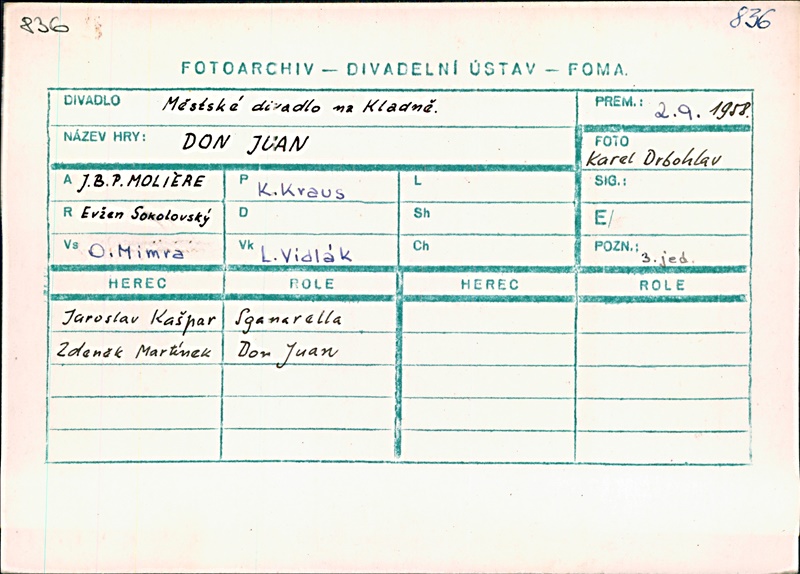 836
836
FOTOARCHIV — DIVADELNÍ ÚSTAV — FOMA.
DIVADLO Městské divadlo na Kladně.
PREM.: 2.9. 1958.
NÁZEV HRY: DON JUAN
FOTO Karel Drbohlav
A J.B.P. MOLIÈRE P K.Kraus L SIG.:
R Evžen Sokolovský D Sh E/
Vs O.Mimra Vk L.Vidlák Ch POZN.: 3. jed.
HEREC ROLE HEREC ROLE
Jaroslav Kašpar Sganarella
Zdeněk Martínek Don Juan